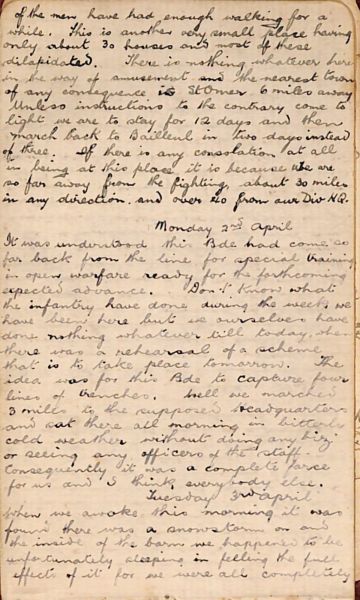 of the men have had enough walking for a
while. This is another very small place having
only about 30 houses and most of these
dilapidated. There is nothing whatever here
in the way of amusement and the nearest town
of any consequence is St Omer 6 miles away
Unless instructions to the contrary come to
light we are to stay for 12 days and then
march back to Bailleul in two days instead
of three. If there is any consolation at all
in being at this place it is because we are
so far away from the fighting, about 30 miles
in any direction and over 40 from our Div H.Q.
Monday 2nd April
It was understood this Bde had come so
far back from the line for special training
in open warfare ready for the forthcoming
expected advance. Don't know what
the infantry have done during the week we
have been here but we ourselves have
done nothing whatever till today, when
there was a rehearsal of a scheme
that is to take place tomorrow. The
idea was for this Bde to capture four
lines of trenches. Well we marched
3 miles to the supposed Headquarters
and sat there all morning in bitterly
cold weather without doing any biz
or seeing any officers of the staff.
Consequently it was a complete farce
for us and I think everybody else.
Tuesday 3rd April
When we awoke this morning it was
found there was a snowstorm on and
the inside of the barn we happened to be
unfortunately sleeping in felling the full
effects of it for we were all completely